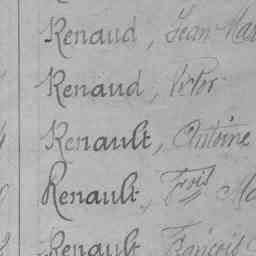 Renaud, Jean-Mar
Renaud, Victor
Renault, Antoine
Renault, Frois Ma
Renault, François